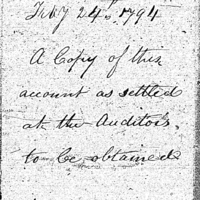 July 24th 1794
A Copy of this
account as settled
at the Auditors,
to be obtained